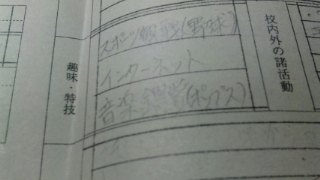 趣味・特技
スポーツ観戦(野球)
インターネット
音楽鑑賞(ポップス)
校内外の諸活動